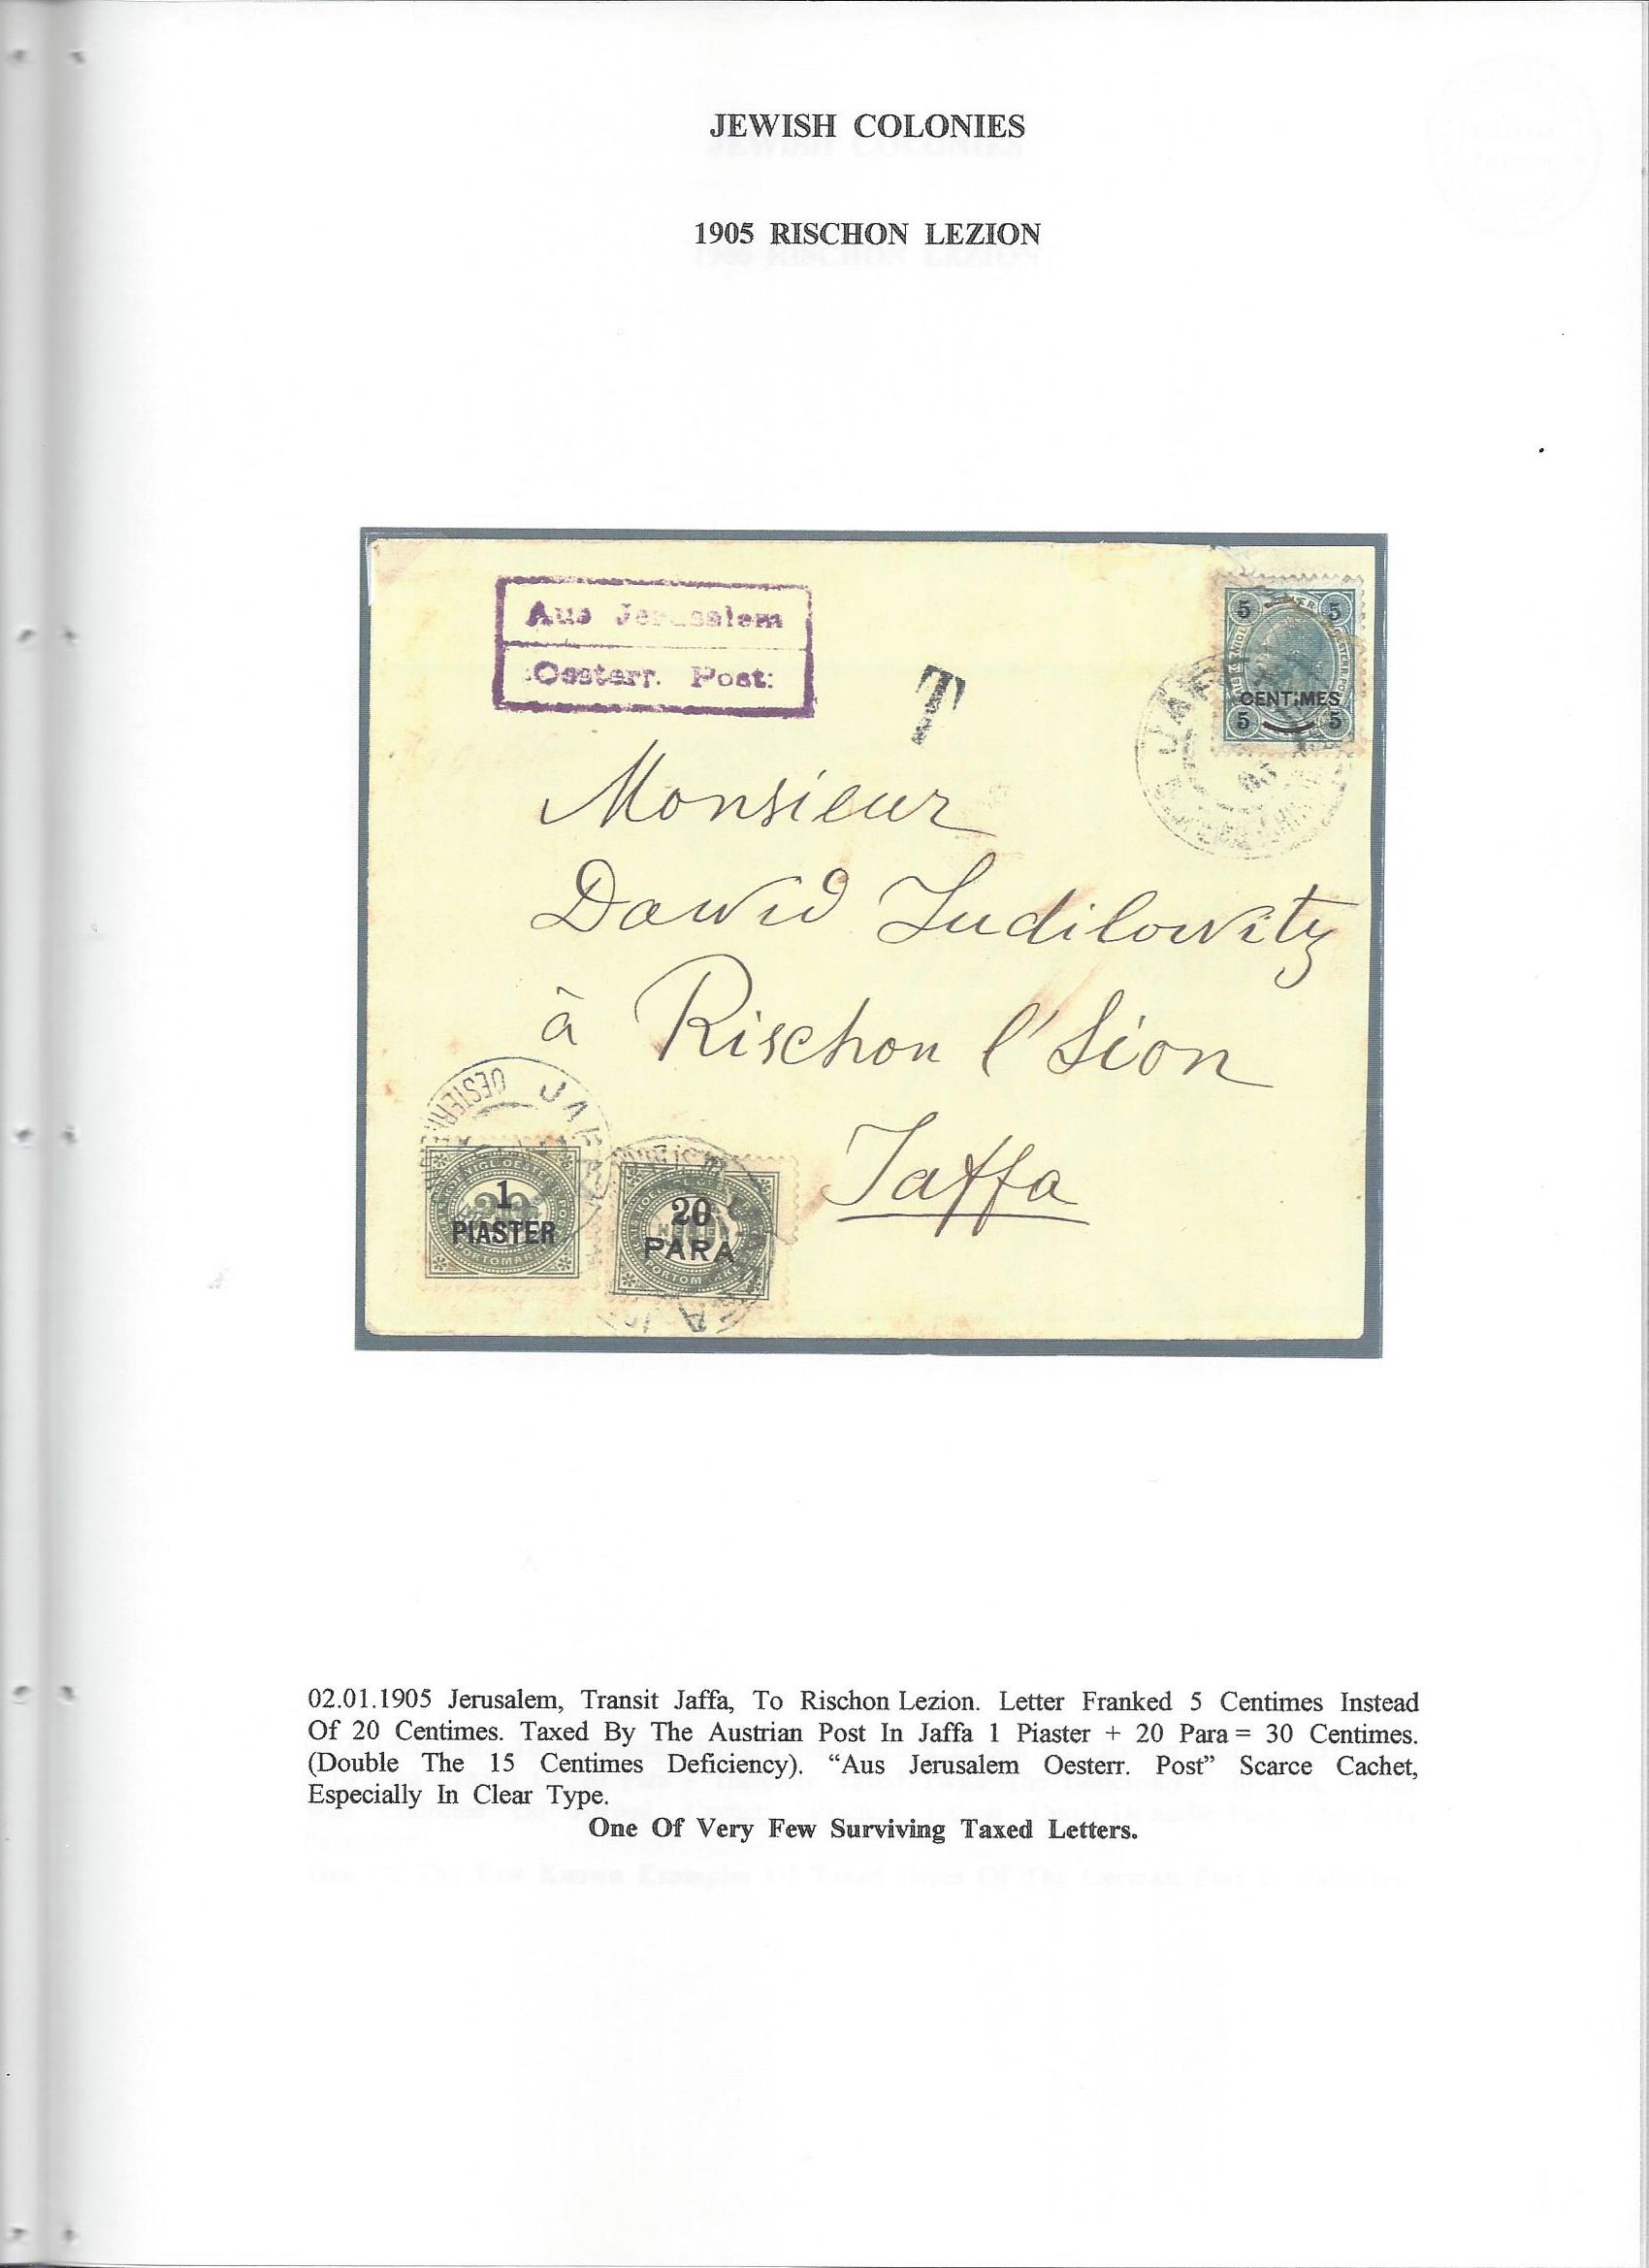 JEWISH COLONIES
1905 RISCHON LEZION
Aus Jerusalem
Oesterr. Post:
T
5 5
CENTIMES
5 5
JAFFA
Monsieur
Dawid Judilowitz
à Rischon l'Sion
Jaffa
OESTERR. JAF
1
PIASTER
20
PARA
PORTOMARKE
02.01.1905 Jerusalem, Transit Jaffa, To Rischon Lezion. Letter Franked 5 Centimes Instead
Of 20 Centimes. Taxed By The Austrian Post In Jaffa 1 Piaster + 20 Para = 30 Centimes.
(Double The 15 Centimes Deficiency). “Aus Jerusalem Oesterr. Post” Scarce Cachet,
Especially In Clear Type.
One Of Very Few Surviving Taxed Letters.